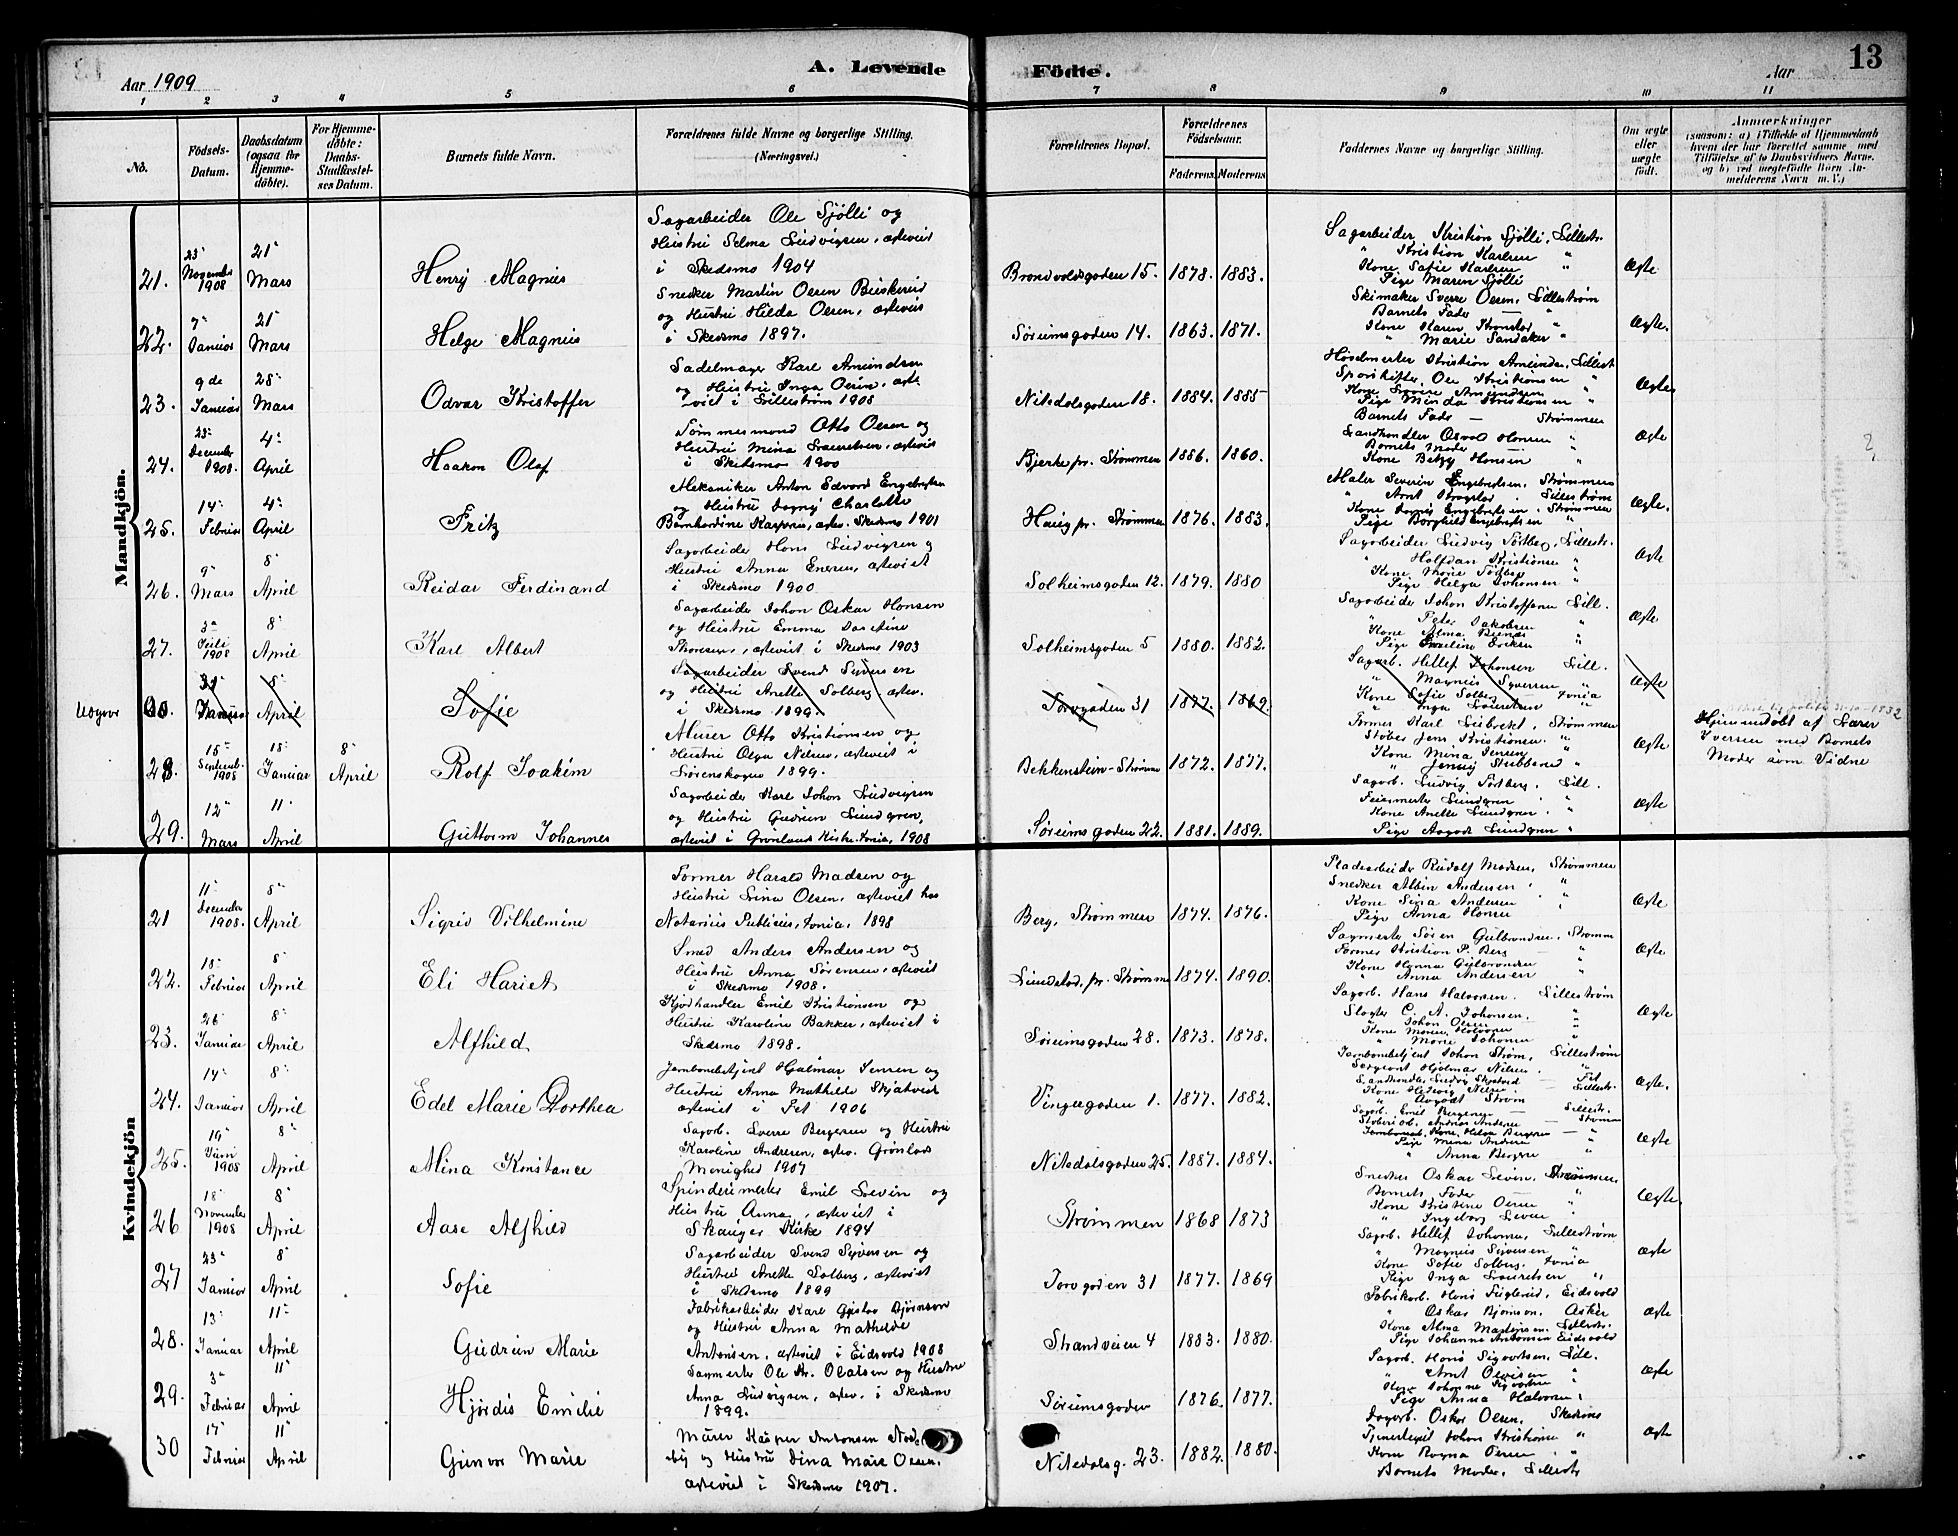 13
Aar 1909
A. Levende Födte.
Aar
1 2 3 4 5 6 7 8 9 10 11
No.
Födsels-
Datum.
Daabsdatum
(ogsaa for
Hjemme-
döbte).
For Hjemme-
döbte:
Daabs-
Stadfæstel-
ses Datum.
Barnets fulde Navn.
Forældrenes fulde Navne og borgerlige Stilling.
(Næringsvei.)
Forældrenes Bopæl.
Forældrenes
Födselsaar.
Faderens. Moderens.
Faddernes Navne og borgerlige Stilling.
Om ægte
eller
uægte
födt.
Anmærkninger
(saasom: a) i Tilfælde af Hjemmedaab
hvem der har forrettet samme, med
Tilföielse af to Daabsvidners Navne.
og b) ved uægtefödte Börn An-
melderens Navn m. V.)
Mandkjön.
21. 23 November 1908 21 Mars Henry Magnus
Sagarbeider Ole Sjølli og
Hustru Selma Ludvigsen, ægteviet
i Skedsmo 1904
15. 1878. 1883.
Sagarbeider Kristian Sjølli, Lillestr.
" Kristian Karlsen "
Kone Sofie Karlsen "
Pige Maren Sjølli
Ægte
22. 7 Januar 21 Mars Helge Magnus
Snedker Martin Olsen Buskerud
og Hustru Hilda Olsen, ægteviet
i Skedsmo 1897.
Sørumsgaden 14. 1863. 1871.
Skimaker Sverre Olsen, Lillestrøm
Barnets Fader — "
Kone Karen "
" Marie Sandaker "
Ægte.
23. 9de Januar 28 Mars Odvar Kristoffer
Sadelmager Karl Amundsen
og Hustru Inga Olsen, ægte-
viet i Lillestrøm 1908
Nitedalsgaden 18. 1884. 1885
Kristian Amundsen, Lillest
Ole Kristiansen "
Kone Amundsen "
Pige Minda Kristiansen "
Ægte
24. 23 December 1908. 4 April Haakon Olaf
Tømmermand Otto Olsen og
Hustru Mina Lauretsen, ægteviet
i Skedsmo 1900
Bjerke pr. Strømmen 1886. 1860.
Barnets Fader — Strømmen
Landhandler Osvald Hansen "
Barnets Moder "
Kone Betzy Hansen "
Ægte
2,
25. 14 Februar 4 April Fritz
Mekaniker Anton Edvard Engebretsen
og Hustru Dagny Charlotte
Bernhardine Kaspersen, ægtev. Skedsmo 1901
Haug pr. Strømmen 1876. 1883.
Maler Severin Engebretsen, Strømmen
" Arnt Skogstad, Lillestrøm
Kone Engebretsen, Strømmen
Pige Borghild Engebretsen "
Ægte.
26. 9 Mars 8 April Reidar Ferdinand
Sagarbeider Hans Ludvigsen og
Hustru Anna Enersen, ægteviet
i Skedsmo 1900
Solheimsgaden 12. 1879. 1880
Sagarbeider Ludvig Fortberg, Lillestr.
" Halfdan Kristiansen "
Kone Marie Fortberg "
Pige Helga Johansen "
Ægte
27. 3 Juli 1908 8 April Karl Albert
Sagarbeider Johan Oskar Hansen
og Hustru Emma Josefine
Thoresen, ægteviet i Skedsmo 1903
Solheimsgaden 5 1880. 1882.
Sagarbeider Johan Kristoffersen Lill.
" Peter Jakobsen "
Kone Alma "
Pige Eriksen "
Ægte
Januar 8 April Sofie
Sagarbeider Svend Syversen
og Hustru Anette Solberg, ægtev.
i Skedsmo 1899.
Torvgaden 31 1877. 1869.
Sagarb. Hellef Johansen Lill.
" Magnus Syversen "
Kone Sofie Solberg, Xania
" Inga Lauretsen "
Ægte
28. 15 Septemb. 1908 15 Januar 8 April Rolf Joakim
Murer Otto Kristiansen og
Hustru Olga Nilsen, ægteviet i
Sørenskogen 1899.
Bekkenstein - Strømmen 1872. 1877.
Former Karl, Strømmen
Støber Jens Kristiansen "
Kone Mina Jensen "
" Jenny Stubberud "
Ægte
Hjemmedøbt af Lærer
Iversen med Barnets
Moder som Vidne
29. 12 Mars 11 April Guttorm Johannes
Sagarbeider Karl Johan Ludvigsen
og Hustru Gudrun Lundgren,
ægteviet i Grønlands Kirke, Xania, 1908
Sørumsgaden 22. 1881. 1889.
Sagarb. Ludvig Fortberg, Lill.
Lundgren "
Kone Anette Lundgren "
Pige Aagot Lundgren "
Ægte
Kvindekjön
21 11 December 1908. 8 April Sigrid Vilhelmine
Former Harald Madsen og
Hustru Lina Olsen, ægteviet hos
Notarius Publicus, Xania, 1898
Berg, Strømmen 1874. 1876.
Pladsarbeider Rudolf Madsen, Strømmen
Snedker Albin Andersen "
Kone Lina Andersen "
Pige Anna Hansen
Ægte
22. 18 Februar 8 April Eli Hariet
Smed Anders Andersen og
Hustru Anna Sørensen, ægteviet
i Skedsmo 1908.
Lundstad, pr. Strømmen 1874. 1890.
Sagmester Søren Gulbrandsen, Strømmen
Former Kristian P. Berg — "
Kone Hanna Gulbrandsen "
" Anna Andersen "
Ægte
23. 26 Januar 8 April Alfhild
Kjødhandler Emil Kristiansen og
Hustru Karoline Bakken, ægteviet i
Skedsmo 1898.
Sørumsgaden 28. 1873. 1878.
Sagarb. Hans Halvorsen. Lillestrøm
Slagter C. A. Johansen. "
" Johan Olsen "
Kone Maren Halvorsen "
" Marie Johansen "
Ægte
24. 14 Januar 8 April Edel Marie Dorthea
Jernbanebetjent Hjalmar Jensen og
Hustru Anna Mathilde Skjatvedt
ægteviet i Fet 1906
Vingergaden 1. 1877. 1882.
Jernbanebetjent Johan Strøm, Lillestrøm
Sergeant Hjalmar Nilsen "
Landhandler Ludvig Skjatved — Fet
Kone Hedevig Nilsen, Lillestr.
" Aagodt Strøm
Ægte.
25. 19 Juni 1908 8 April Mina Konstance
Sagarb. Sverre Bergersen og Hustru
Karoline Andersen, ægtev. Grønlands
Menighed 1907
Nitedalsgaden 25. 1887. 1884.
Sagarb. Emil Bergersen — Lillestr.
Støberiarb. Andreas Andersen — Strømm
Kone Helga Bergersen — "
Pige Mina Andersen "
" Anna Bergersen "
Ægte
26 18 November 1908 8 April Aase Alfhild
Spinderimester Emil Levin og
Hustru Anna, ægteviet i
Skauger Kirke 1894
Strømmen 1868 1873
Snedker Oskar Levin, Strømmen,
Barnets Fader — "
Kone Kristine Olsen "
" Ingeborg Levin "
Ægte.
27 23 Januar 8 April Sofie
Sagarbeider Svend Syversen og
Hustru Anette Solberg, ægteviet
i Skedsmo 1899
Torvgaden 31 1877. 1869
Sagarb. Hellef Johansen, Lillestrøm
" Magnus Syversen "
Kone Sofie Solberg, Xania
Pige Inga Lauretsen "
Ægte
28. 13 Januar 11 April Gudrun Marie
Fabrikarbeider Karl Gustav Bjørnson
og Hustru Anna Mathilde
Antonsen, ægteviet i Eidsvold 1908
Strandveien 4 1883. 1880.
Fabrikarb. Hans Fuglerud, Eidsvold
" Oskar Bjørnson, Asker
Kone Alma Martinsen, Lillestr.
Pige Johanne Antonsen Eidsvold
Ægte
29. 3 Februar 11 April Hjørdis Emilie
Tømmester Ole Kr. Olafsen og Hustru
Anna Ludvigsen, ægtev. i Skedsmo
1899.
Sørumsgaden 1876. 1877.
Sagarb. Hans Sigvartsen, Lill.
" Arnt Olavsen "
Kone Johanne Sigvartsen "
Pige Anna Halvorsen "
Ægte
30 17 Februar 11 April Gunvor Marie
Murer Kasper Antonsen
by og Hustru Dina Marie Olsen,
ægteviet i Skedsmo 1907.
Nitedalsg. 23. 1882. 1880.
Sagarb. Oskar Olsen, Skedsmo
Johan Kristiansen "
Kone Ragna Olsen "
Barnets Moder, Lillestr
Ægte